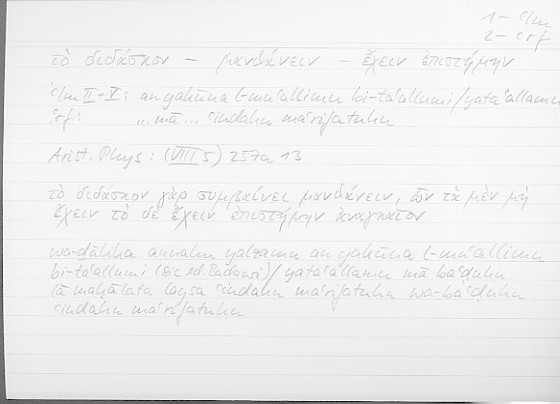 1 – ʿlm
2 – ʿrf
τὸ διδάσκον – μανθάνειν – ἔχειν ἐπιστήμην
ʿlm II + V : an yakūna l-muʿallimu bi-taʿallumi / yataʿallamu
ʿrf : ... mā ... ʿindahu maʿrifatuhu
Arist. Phys : (VIII 5) 257a 13
τὸ διδάσκον γὰρ συμβαίνει μανθάνειν, ὧν τὰ μὲν μὴ
ἔχειν τὸ δὲ ἔχειν ἐπιστήμην ἀναγκαῖον
wa-ḏālika annahu yalzamu an yakūna l-muʿallimu
bi-taʿallumi (sic ed. Badawi) / yataʿallamu mā baʿḍuhu
lā maḥālata laysa ʿindahu maʿrifatuhu wa-baʿḍuhu
ʿindahu maʿrifatuhu